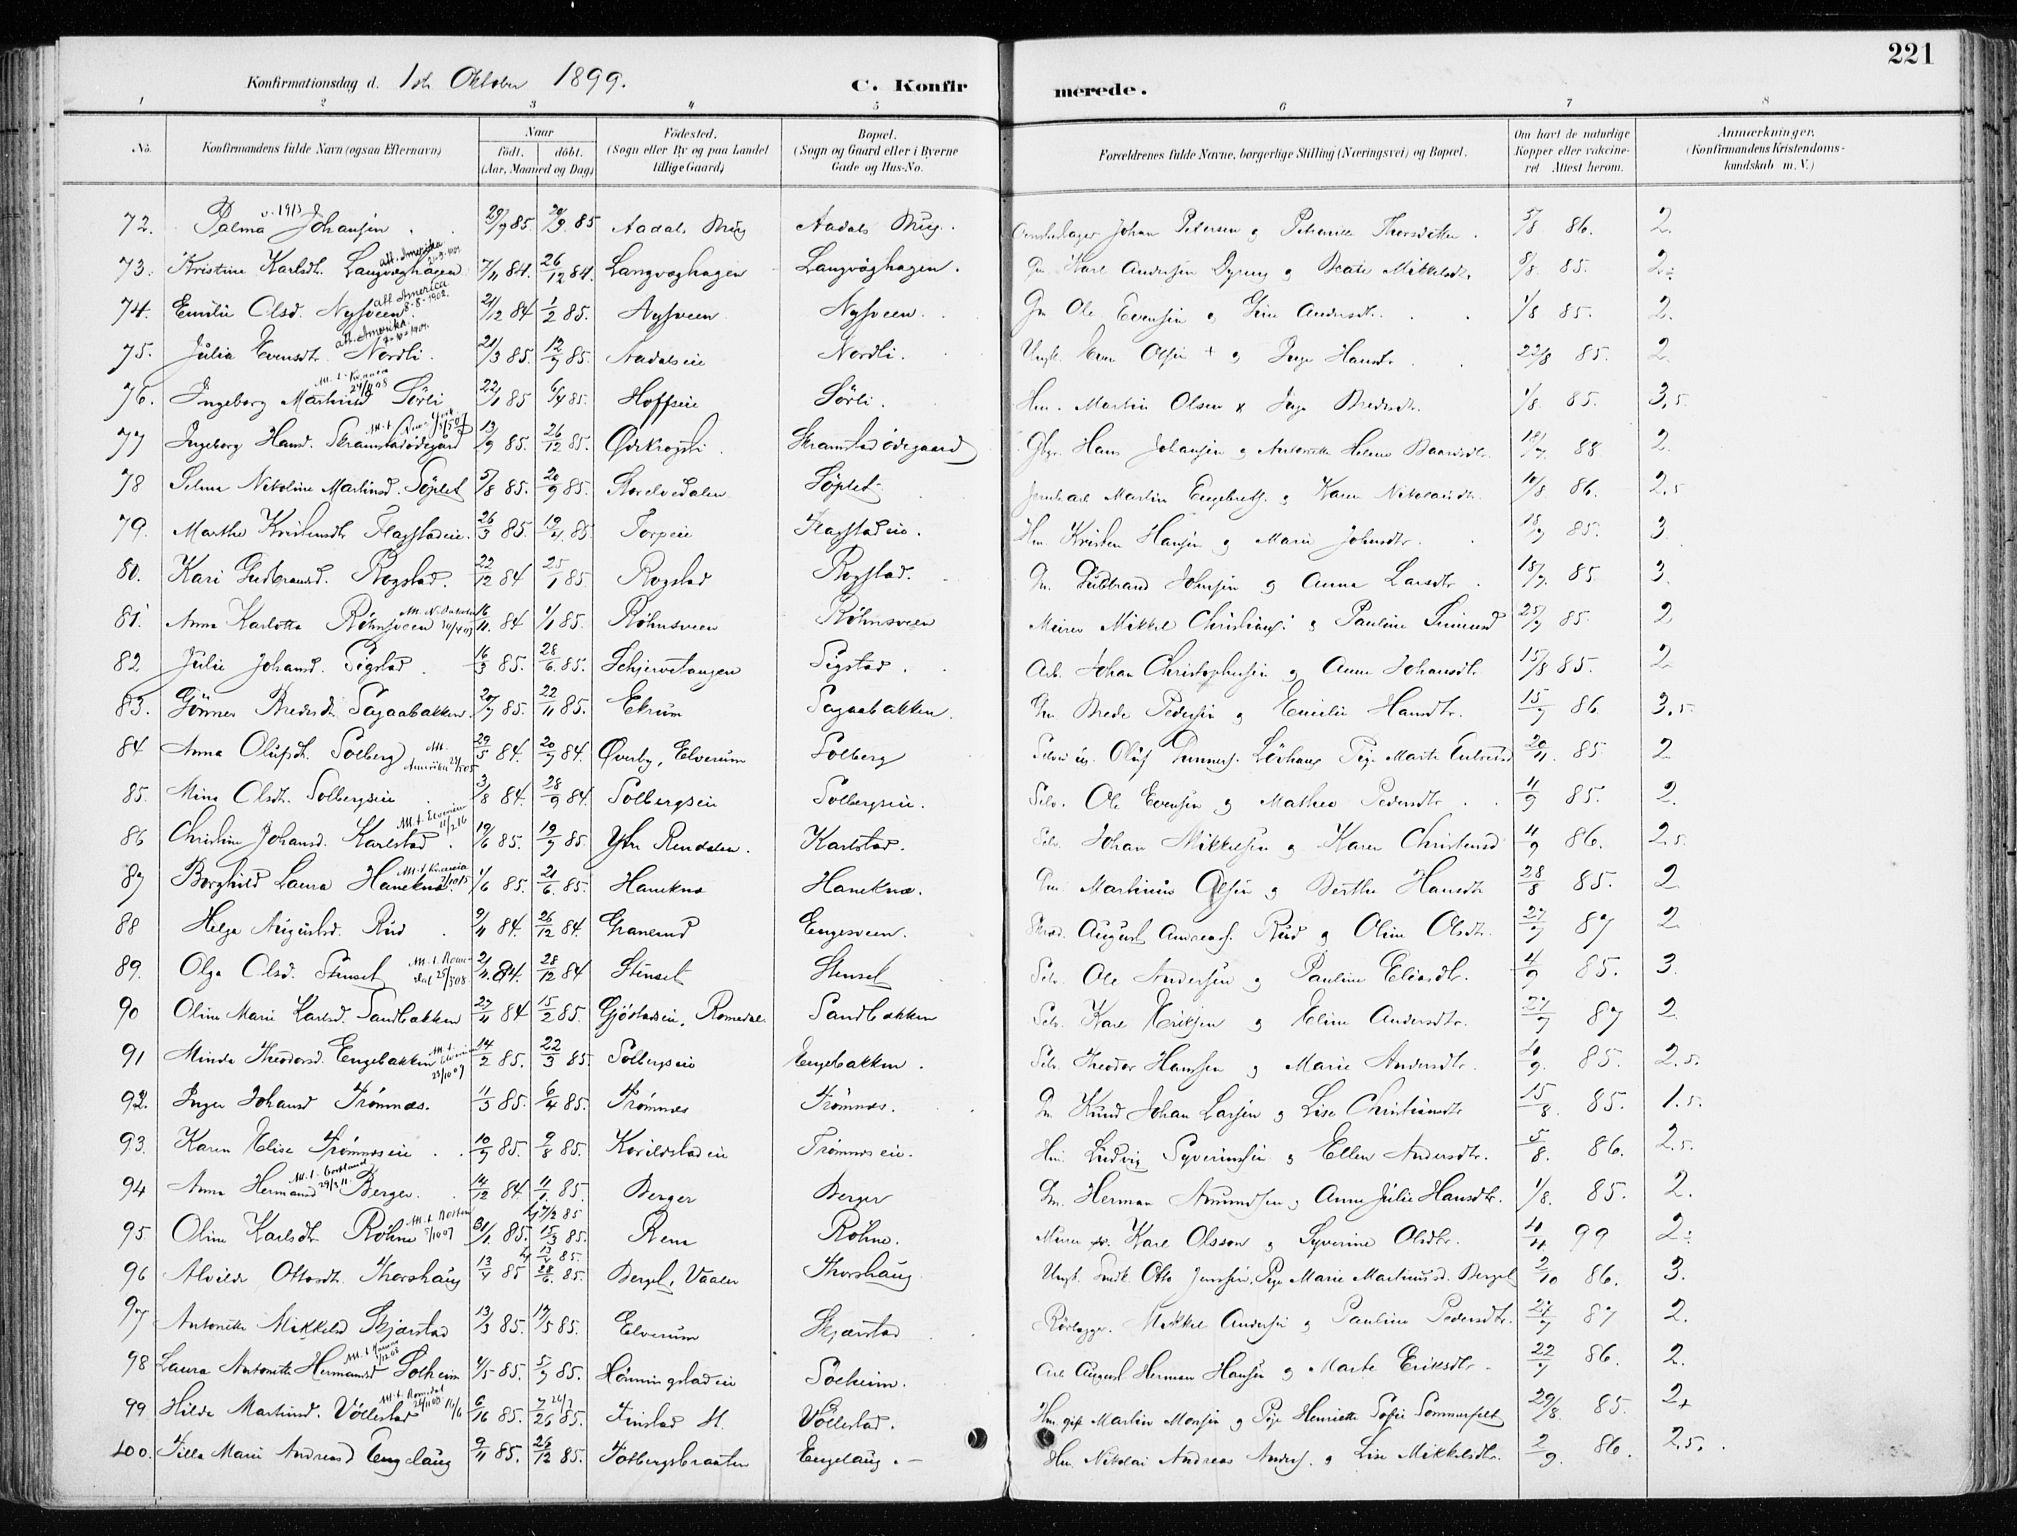 221
Konfirmationsdag d. 1ste Oktober 1899.
C. Konfirmerede.
1 2 3 4 5 6 7 8
No.
Konfirmandens fulde Navn (ogsaa Efternavn)
Naar
født. døbt.
(Aar, Maaned og Dag)
Fødested.
(Sogn eller By og paa Landet
tillige Gaard)
Bopæl.
(Sogn og Gaard eller i Byerne
Gade og Hus-No.
Forældrenes fulde Navne, borgerlige Stilling (Næringsvei) og Bopæl.
Om havt de naturlige
Kopper eller vakcine-
ret Attest herom.
Anmærkninger.
(Konfirmandens Kristendoms-
kundskab m. V.)
72. Palma Johansen 29/7 85 Aadals Brug Aadals Brug. Johan Petersen og 5/8 86. 2.
73. Kristine Karlsdt. Langvæghagen 7/11 84. 26/12 84. Langvæghagen Langvæghagen. Gm Karl Andersen Dyreng og Beate Mikkelsdt. 5/8. 85. 2.
74. Emilie Olsd. Nysveen att. America 8-8-1902. 21/12 84 1/2 85. Nysveen Nysveen. Gm Ole Evensen og Andersdt. 1/8 85. 2.
75. Julia Evensdt. Nordli. att. Amerika 21/3 85. 12/7 85. Aadalseie Nordli. Ungk. Even Olsen + og Inge Hansdt. 22/8 85. 2.
76. Ingeborg Martinsd Sörli 22/1 85 6/4 85. Hoffseie Sörli. Hm. Martin Olsen x Inge Bredesdt. 1/8. 85. 3,5
77 Ingeborg Hansd. Skramstadødegård 13/9 85. 26/12 85. Skramstadödegaard Gbr. Hans Johansen og Antonette Helene 88. 2.
78 Selma Nikoline Martinsd. Söplet 5/8 85. 20/9 85. Storelvedalen Söplet Martin Engebrets. og Karen Nikolaisdt. 10/8 86. 2.5
79. Marthe Kristensdt Flagstadeie. 26/3 85. 19/4 85. Torpeie Flagstadeie. Hm. Kristen Hansen og Marie Johnsdt. 18/7 85. 3.
80. Kari Gudbransd. Rogstad. 22/12 84 25/1 85. Rogstad Rogstad. Gm. Gudbrand Johnsen og Anna Larsdt. 18/7. 85. 3.
81. Anna Karlotta Röhnsveen 16/11. 84 1/1 85. Röhnsveen Röhnsveen Meieri Mikkel Christians. og Pauline 25/7 85. 2
82 Julie Johansd. Sigstad. 16/3 85. 28/6. 85. Schjervetangen Sigstad. Arb. Johan Christophersen og Anne Johansdt 15/8 85. 2
83. Gönner Bredesdt. Sagaabakken. 20/7 85. 22/11 85. Ekrum Sagaabakken. Gm Brede Pedersen og Emilie Hansdtr. 15/7 86 3.5
84 Anna Olufsdt. Solberg 29/5 84. 20/7 84. Øverby, Elverum Solberg Oluf Gunners. Lövhaug Pige Marte 20/11. 85. 2
85. Mina Olsdt. Solbergseie 3/8 84. 28/9 84. Solbergseie Solbergseie. Selv. Ole Evensen og Mathea Pedersdtr. 4/9 85. 2.
86 Christine Johansd. Karlstad. M. t. Elverum 11/2 16 19/6 85. 19/7 85. Ytre Rendalen. Karlstad. Selv. Johan Mikkelsen og Karen Christensd 4/9 86. 2.5
87 Borghild Laura Hanekne. 1/6 85. 21/6. 85. Hanekne Hanekne. Gm. Martinus Olsen og Berthe Hansdt 28/8 85. 2
88 Helga Augustsd. Rud 9/11 84. 26/12 84. Granerud Engesveen. August Andreas. Rud og Oline Olsdt. 27/7 87 2.
89. Olga Olsd. Stenset 28/12 84 Stenset Stenset Selv. Ole Andersen og Pauline Eliasdtr. 4/9 85. 3.
90 Oline Marie Karlsd. Sandbakken 27/11 84 15/2 85. Gjöstadeie, Romedal Sandbakken Selv. Karl Eriksen og Eline Andersdtr. 27/7 87 2
91 Minda Theodorsd. Engebakken 23/10 07 14/2 85. 22/3 85. Solbergseie Engebakken. Selv. Theodor Hansen og Marie Andersdtr. 10/9. 85. 2.5.
92. Inger Johansd Frömnæs. 11/3 85. 6/4 85. Frömnæs Frömnæs. Gm Knud Johan Larsen og Lise Christiansdt 15/8. 85. 1.5.
93. Karen Elise Frömnæseie 10/7 85. 9/8 85. Frömnæseie. Hm. Ludvig Syverinsen og Ellen Andersdtr. 5/8. 86. 2.5.
94 Anna Hermansd Berger. 29/3 11. 14/12 84 11/1. 85. Berger Berger Gm. Herman Amundsen og Anne Julie Hansdtr. 1/8. 85. 2.
95 Oline Karlsdt Röhne 5/10 07 31/1 85. 15/3 85. Rena Röhne. Karl Olsson og Syverine Olsdtr. 10/4 99 2.
96 Alvilde Ottosdt. Thorshaug 13/4 85 28/6. 85. Bergel, Vaaler Thorshaug Ungk. Otto Jenssen, Pige Marie Martinusd. Bergel 2/10 86. 3.
97 Antonette Mikkelsd Skjærstad 13/3 85. 17/5 85. Elverum Skjærstad Rörlægger. Mikkel Andersen og Pauline Pedersdtr. 27/7 87 2.
98 Laura Antonette Hermansd Solheim 4/5 85. 5/7 85. Hönningstadeie Solheim. Arb August Herman Hansen og Marte Eriksdtr. 22/7 86. 2.
99 Hilda Martinsd. Völlestad 85. 85. Finstad H. Völlestad. Hm. gift Martin Monsen og Pige Henriette Sofie Sommerfelt 29/8. 85. 2+
100. Tilla Marie Andreasd Engelaug 9/11 85. 26/12 85. Engelaug. Hm. Nikolai Andreas Anders. og Lise Mikkelsdtr. 2/9. 86. 2.5.